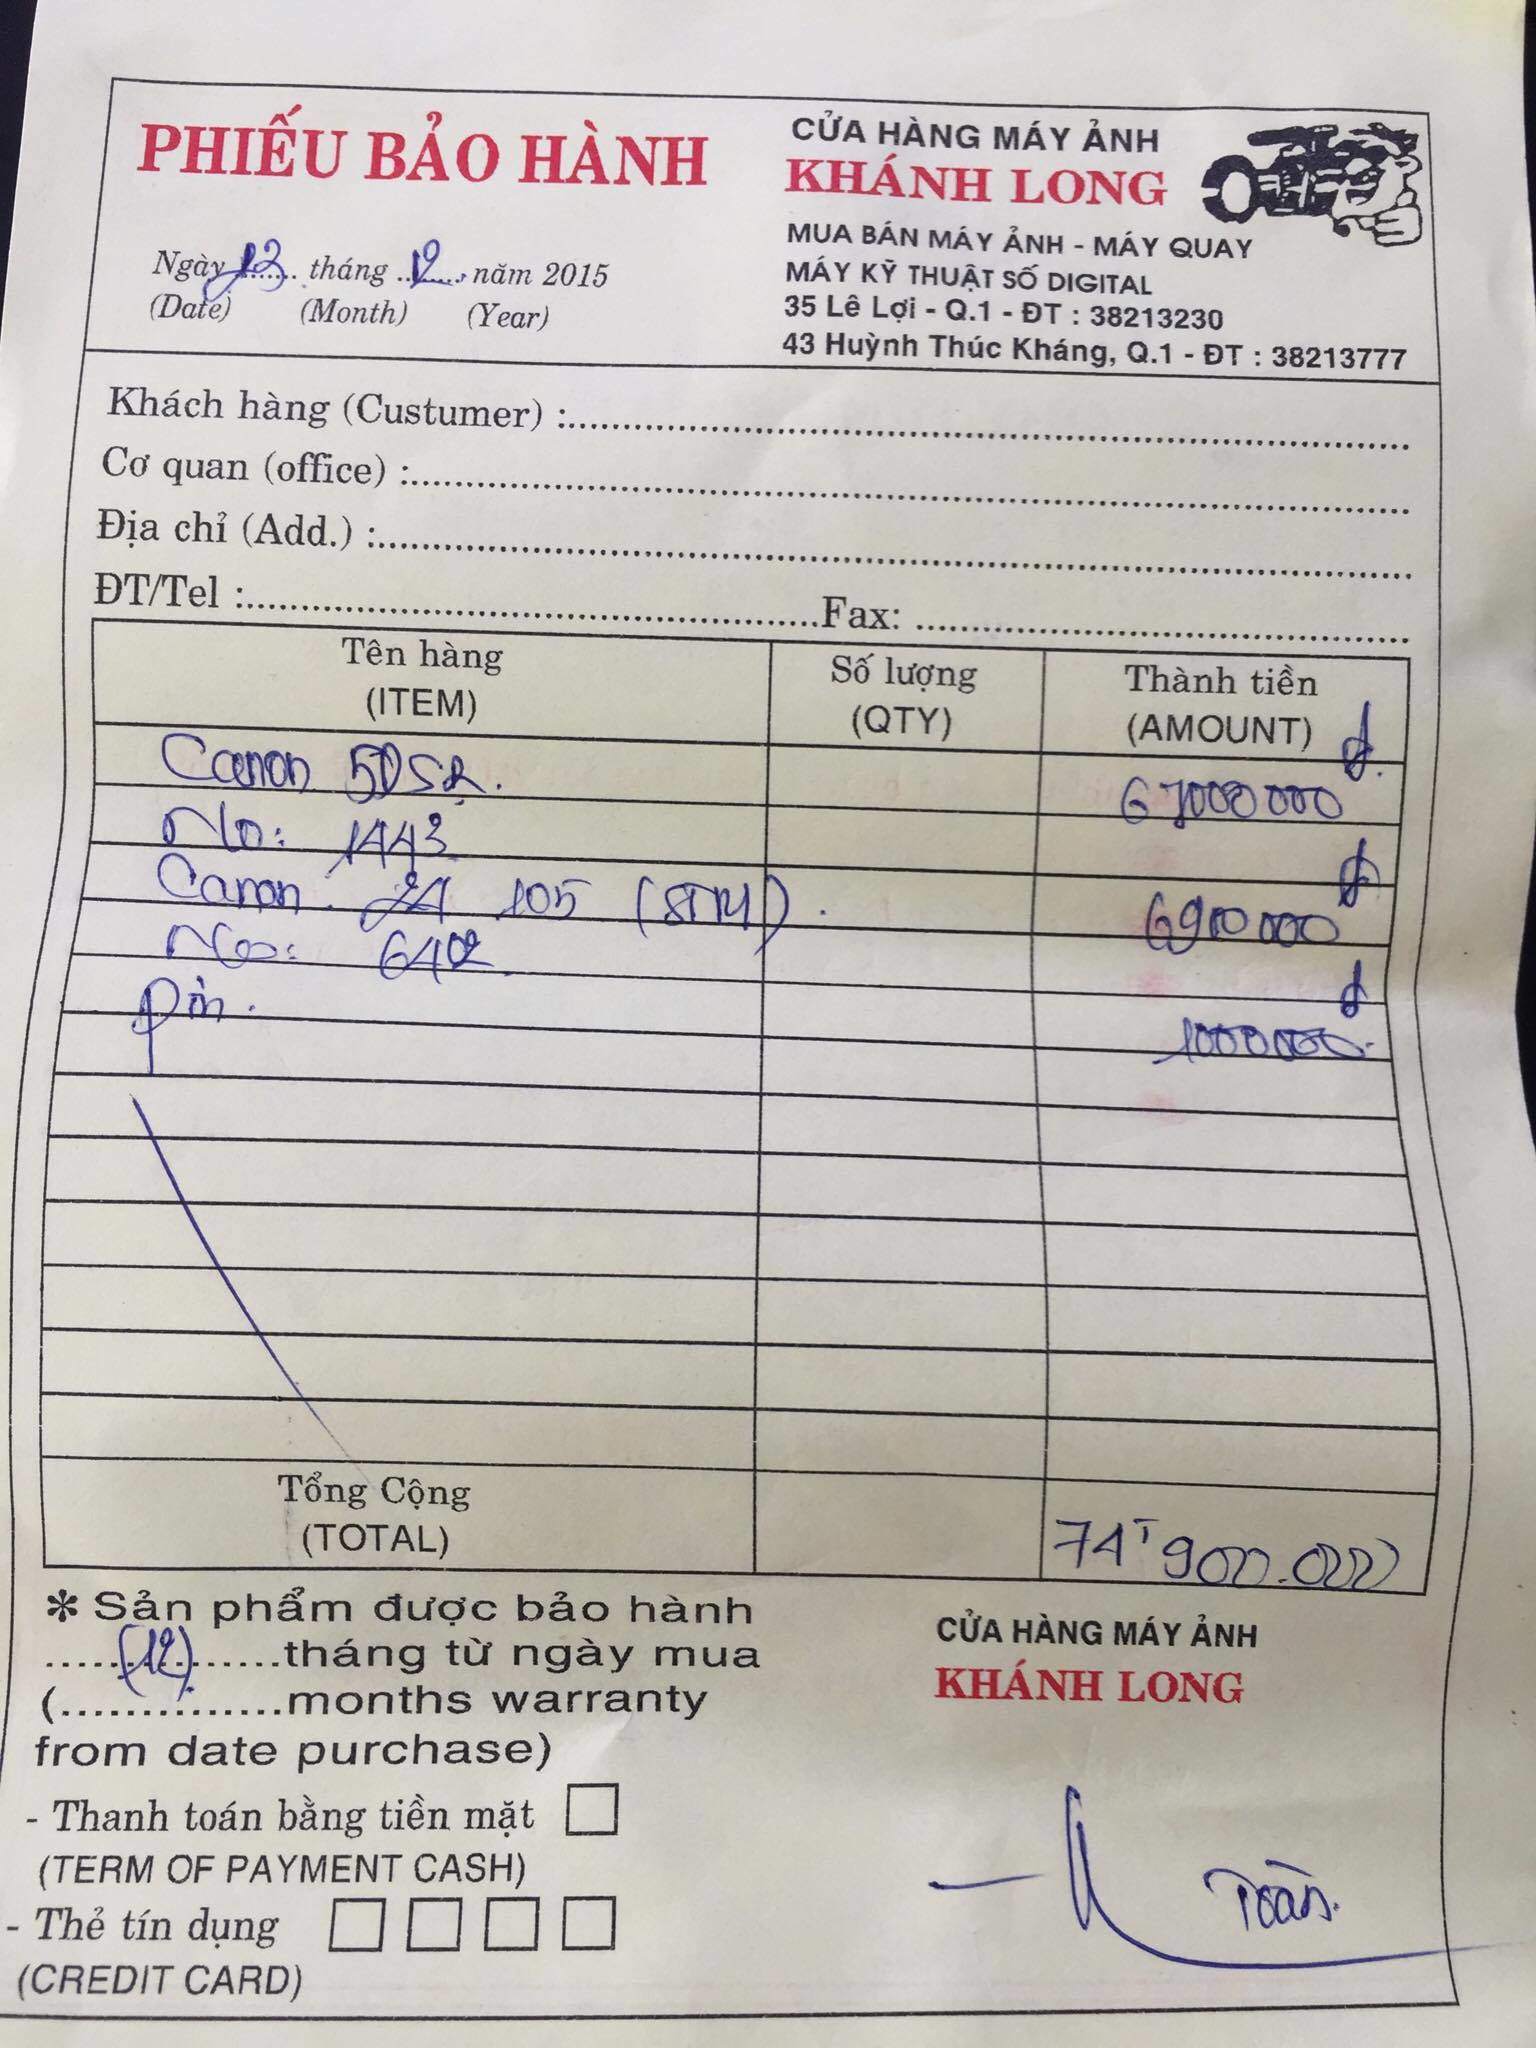 PHIẾU BẢO HÀNH
CỬA HÀNG MÁY ẢNH
KHÁNH LONG
MUA BÁN MÁY ẢNH - MÁY QUAY
MÁY KỸ THUẬT SỐ DIGITAL
35 Lê Lợi - Q.1 - ĐT : 38213230
43 Huỳnh Thúc Kháng, Q.1 - ĐT : 38213777
Ngày tháng 12 năm 2015
(Date) (Month) (Year)
Khách hàng (Custumer) :
Cơ quan (office) :
Địa chỉ (Add.) :
ĐT/Tel : Fax:
Tên hàng Số lượng Thành tiền
(ITEM) (QTY) (AMOUNT)
Canon 5DSR. 67000000đ
No: 1443
Canon 24 105 (STM). 6900000đ
No: 6402
pin. 1000000đ
Tổng Cộng
(TOTAL) 74T 900.000
* Sản phẩm được bảo hành
(12) tháng từ ngày mua
(..............months warranty
from date purchase)
CỬA HÀNG MÁY ẢNH
KHÁNH LONG
- Thanh toán bằng tiền mặt
(TERM OF PAYMENT CASH)
- Thẻ tín dụng
(CREDIT CARD)
Toàn.